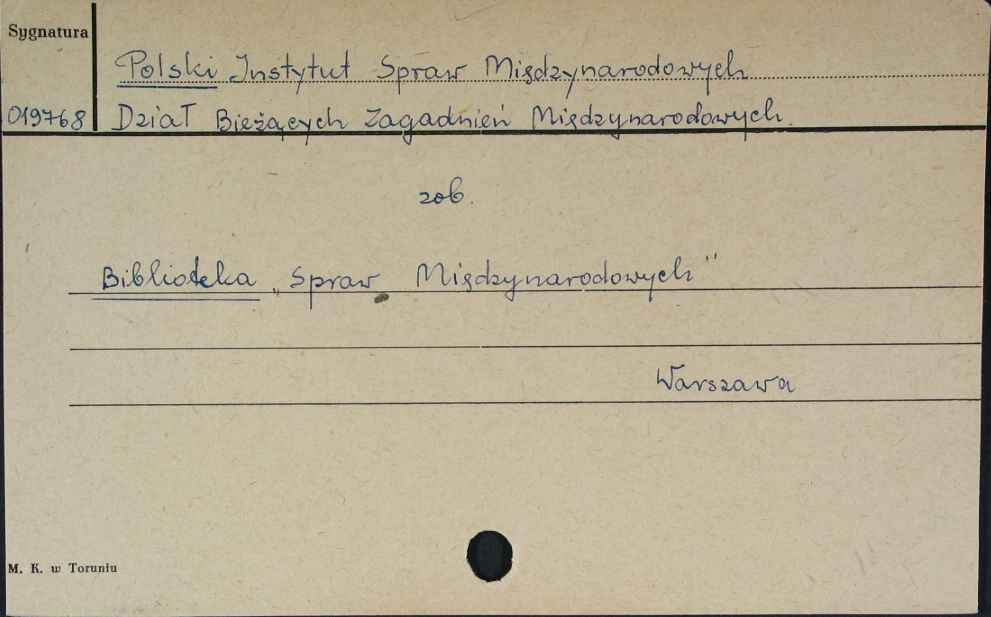 Sygnatura
Polski Instytut Spraw Międzynarodowych
019768 Dział Bieżących Zagadnień Międzynarodowych.
zob.
Biblioteka „Spraw Międzynarodowych"
Warszawa
M. K. w Toruniu